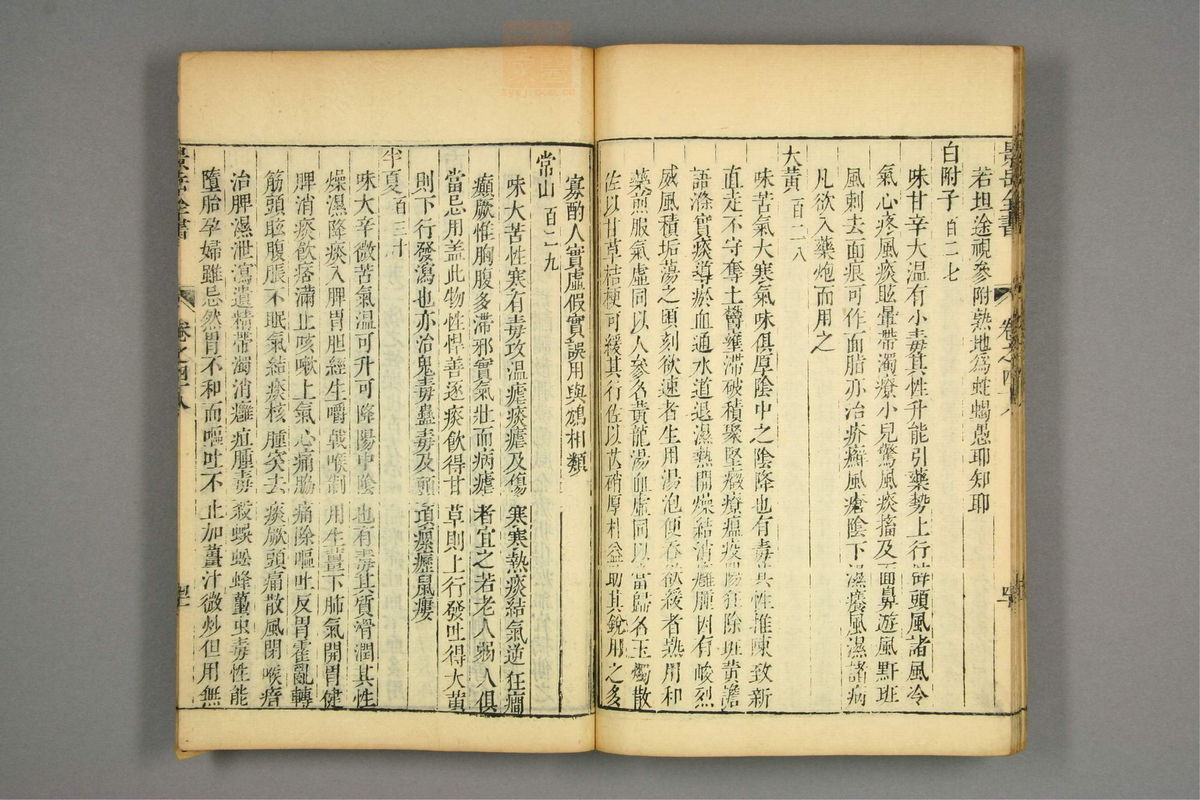 景岳全書
卷之四十八
若坦途視參附熱地爲蛇蝎愚耶知耶
白附子 百二七
味甘辛大温有小毒其性升能引藥勢上行治頭風諸風冷
氣心疼風痰眩暈帶濁療小兒驚風痰搐及面鼻遊風黑斑
風刺去面痕可作面脂亦治疥癬風瘡陰下濕癢風濕諸病
凡欲入藥炮而用之
大黃 百二八
味苦氣大寒氣味俱厚陰中之陰降也有毒其性推陳致新
直走不守奪土鬱壅滯破積聚堅癥療瘟疫陽狂除斑黃譫
語滌實痰導瘀血通水道退濕熱開燥結消癰腫因有峻烈
威風積垢蕩之頃刻欲速者生用湯泡便吞欲緩者熟用和
藥煎服氣虛同以人參名黃龍湯血虛同以當歸名玉燭散
佐以甘草桔梗可緩其行佐以芒硝厚朴益助其銳用之多
寡酌人實虛假實誤用與鴆相類
常山 百二九
味大苦性寒有毒攻温瘧痰瘧及傷寒寒熱痰結氣逆狂癎
癲厥惟胸腹多滯邪實氣壯而病瘧者宜之若老人弱人俱
當忌用盖此物性悍善逐痰飲得甘草則上行發吐得大黃
則下行發瀉也亦治鬼毒蠱毒及頭項瘰癧鼠瘻
半夏 百三十
味大辛微苦氣温可升可降陽中陰也有毒其質滑潤其性
燥濕降痰入脾胃胆經生嚼戟喉制用生薑下肺氣開胃健
脾消痰飲痞滿止咳嗽上氣心痛脇痛除嘔吐反胃霍亂轉
筋頭眩腹脹不眠氣結痰核腫突去痰厥頭痛散風閉喉瘖
治脾濕泄瀉遺精帶濁消癰疽腫毒殺蜈蚣蜂蠆虫毒性能
墮胎孕婦雖忌然胃不和而嘔吐不止加薑汁微炒但用無
景岳全書
卷之四十八